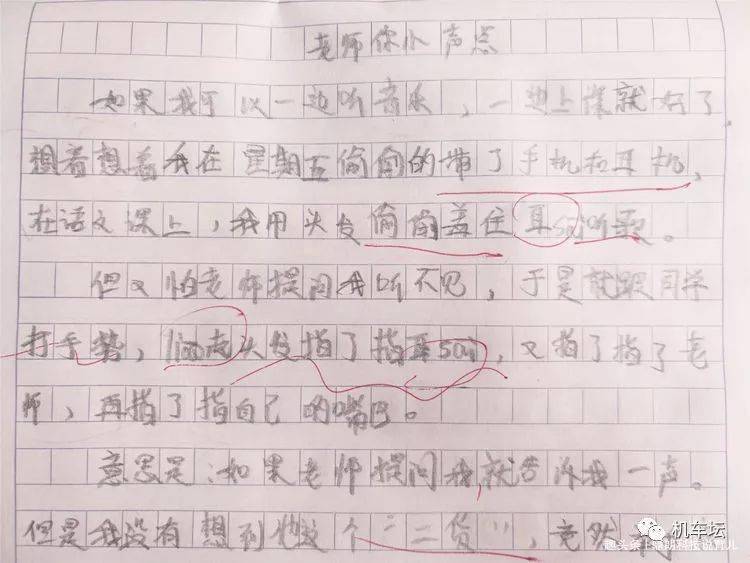 老师你小声点
如果我可以一边听音乐，一边上课就好了
想着想着我在星期五偷偷的带了手机和耳机，
在语文课上，我用头发偷偷盖住耳sai听歌。
但又怕老师提问我听不见，于是就跟同学
打手势，liao起头发指了指耳sai，又指了指了老
师，再指了指自己的嘴巴。
意思是：如果老师提问我，就告诉我一声。
但是我没有想到他这个“二货”，竟然
机车坛